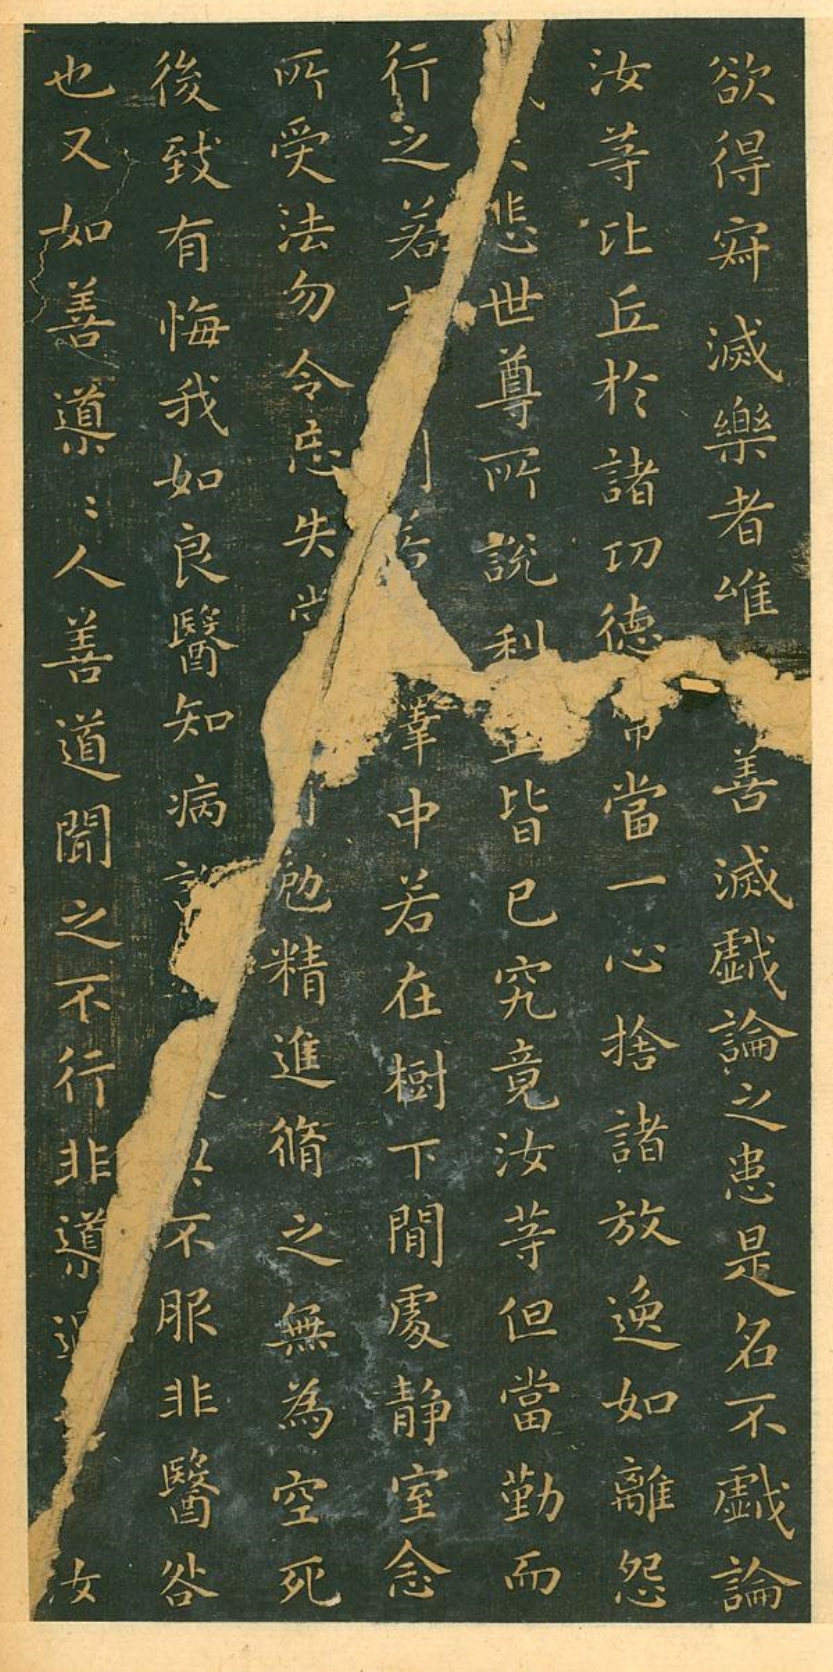 欲得寂滅樂者唯善滅戯論之患是名不戯論
汝等比丘於諸功德常當一心捨諸放逸如離怨
悲世尊所說利皆已究竟汝等但當勤而
行之若中若在樹下閒處静室念
所受法勿令忘失勉精進脩之無為空死
後致有悔我如良醫知病不服非醫咎
也又如善導〻人善道聞之不行非導過汝